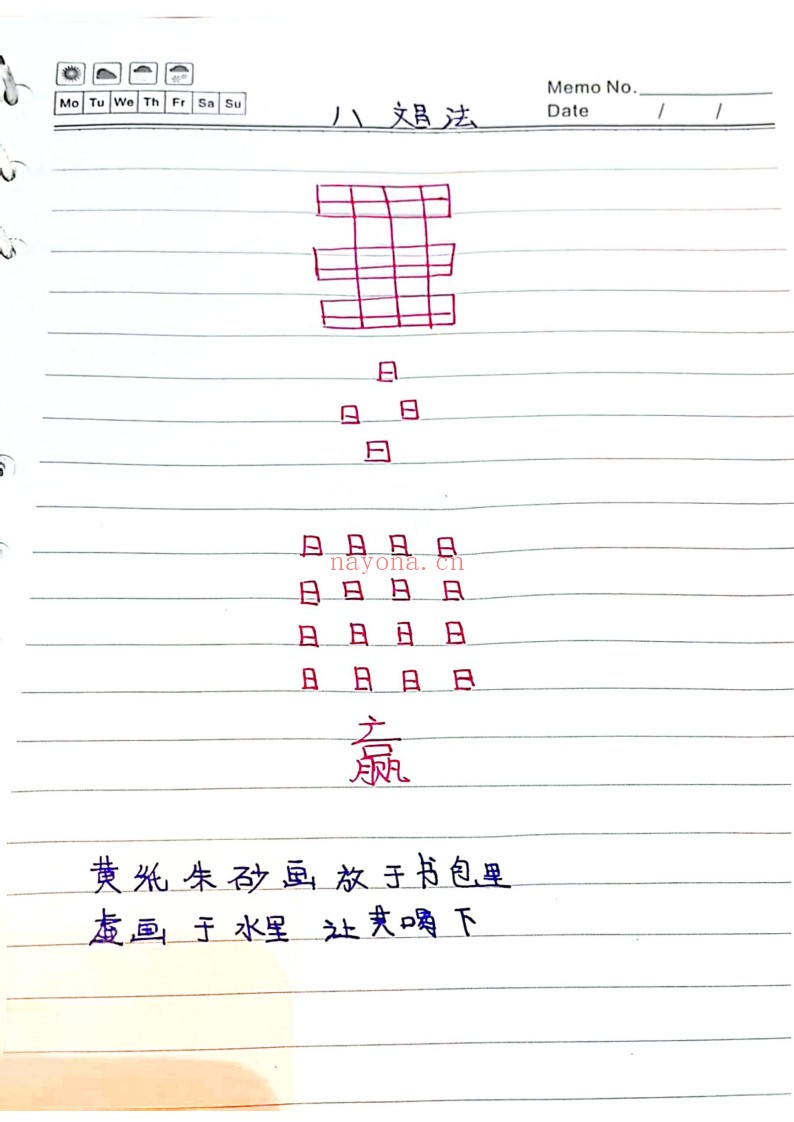 Memo No.
Mo Tu We Th Fr Sa Su
Date / /
八 文昌 法
日
日 日
日
日 日 日 日
nayona.cn
日 日 日 日
日 日 日 日
日 日 日 日
赢
黄纸朱砂画放于书包里
虚画于水里 让其喝下